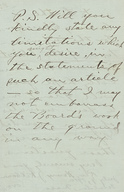 P.S. Will you
kindly state any
limitations which
you desire in
the statements of
such an article
— so that I may
not embarrass
the Board's work
on the ground
in any way